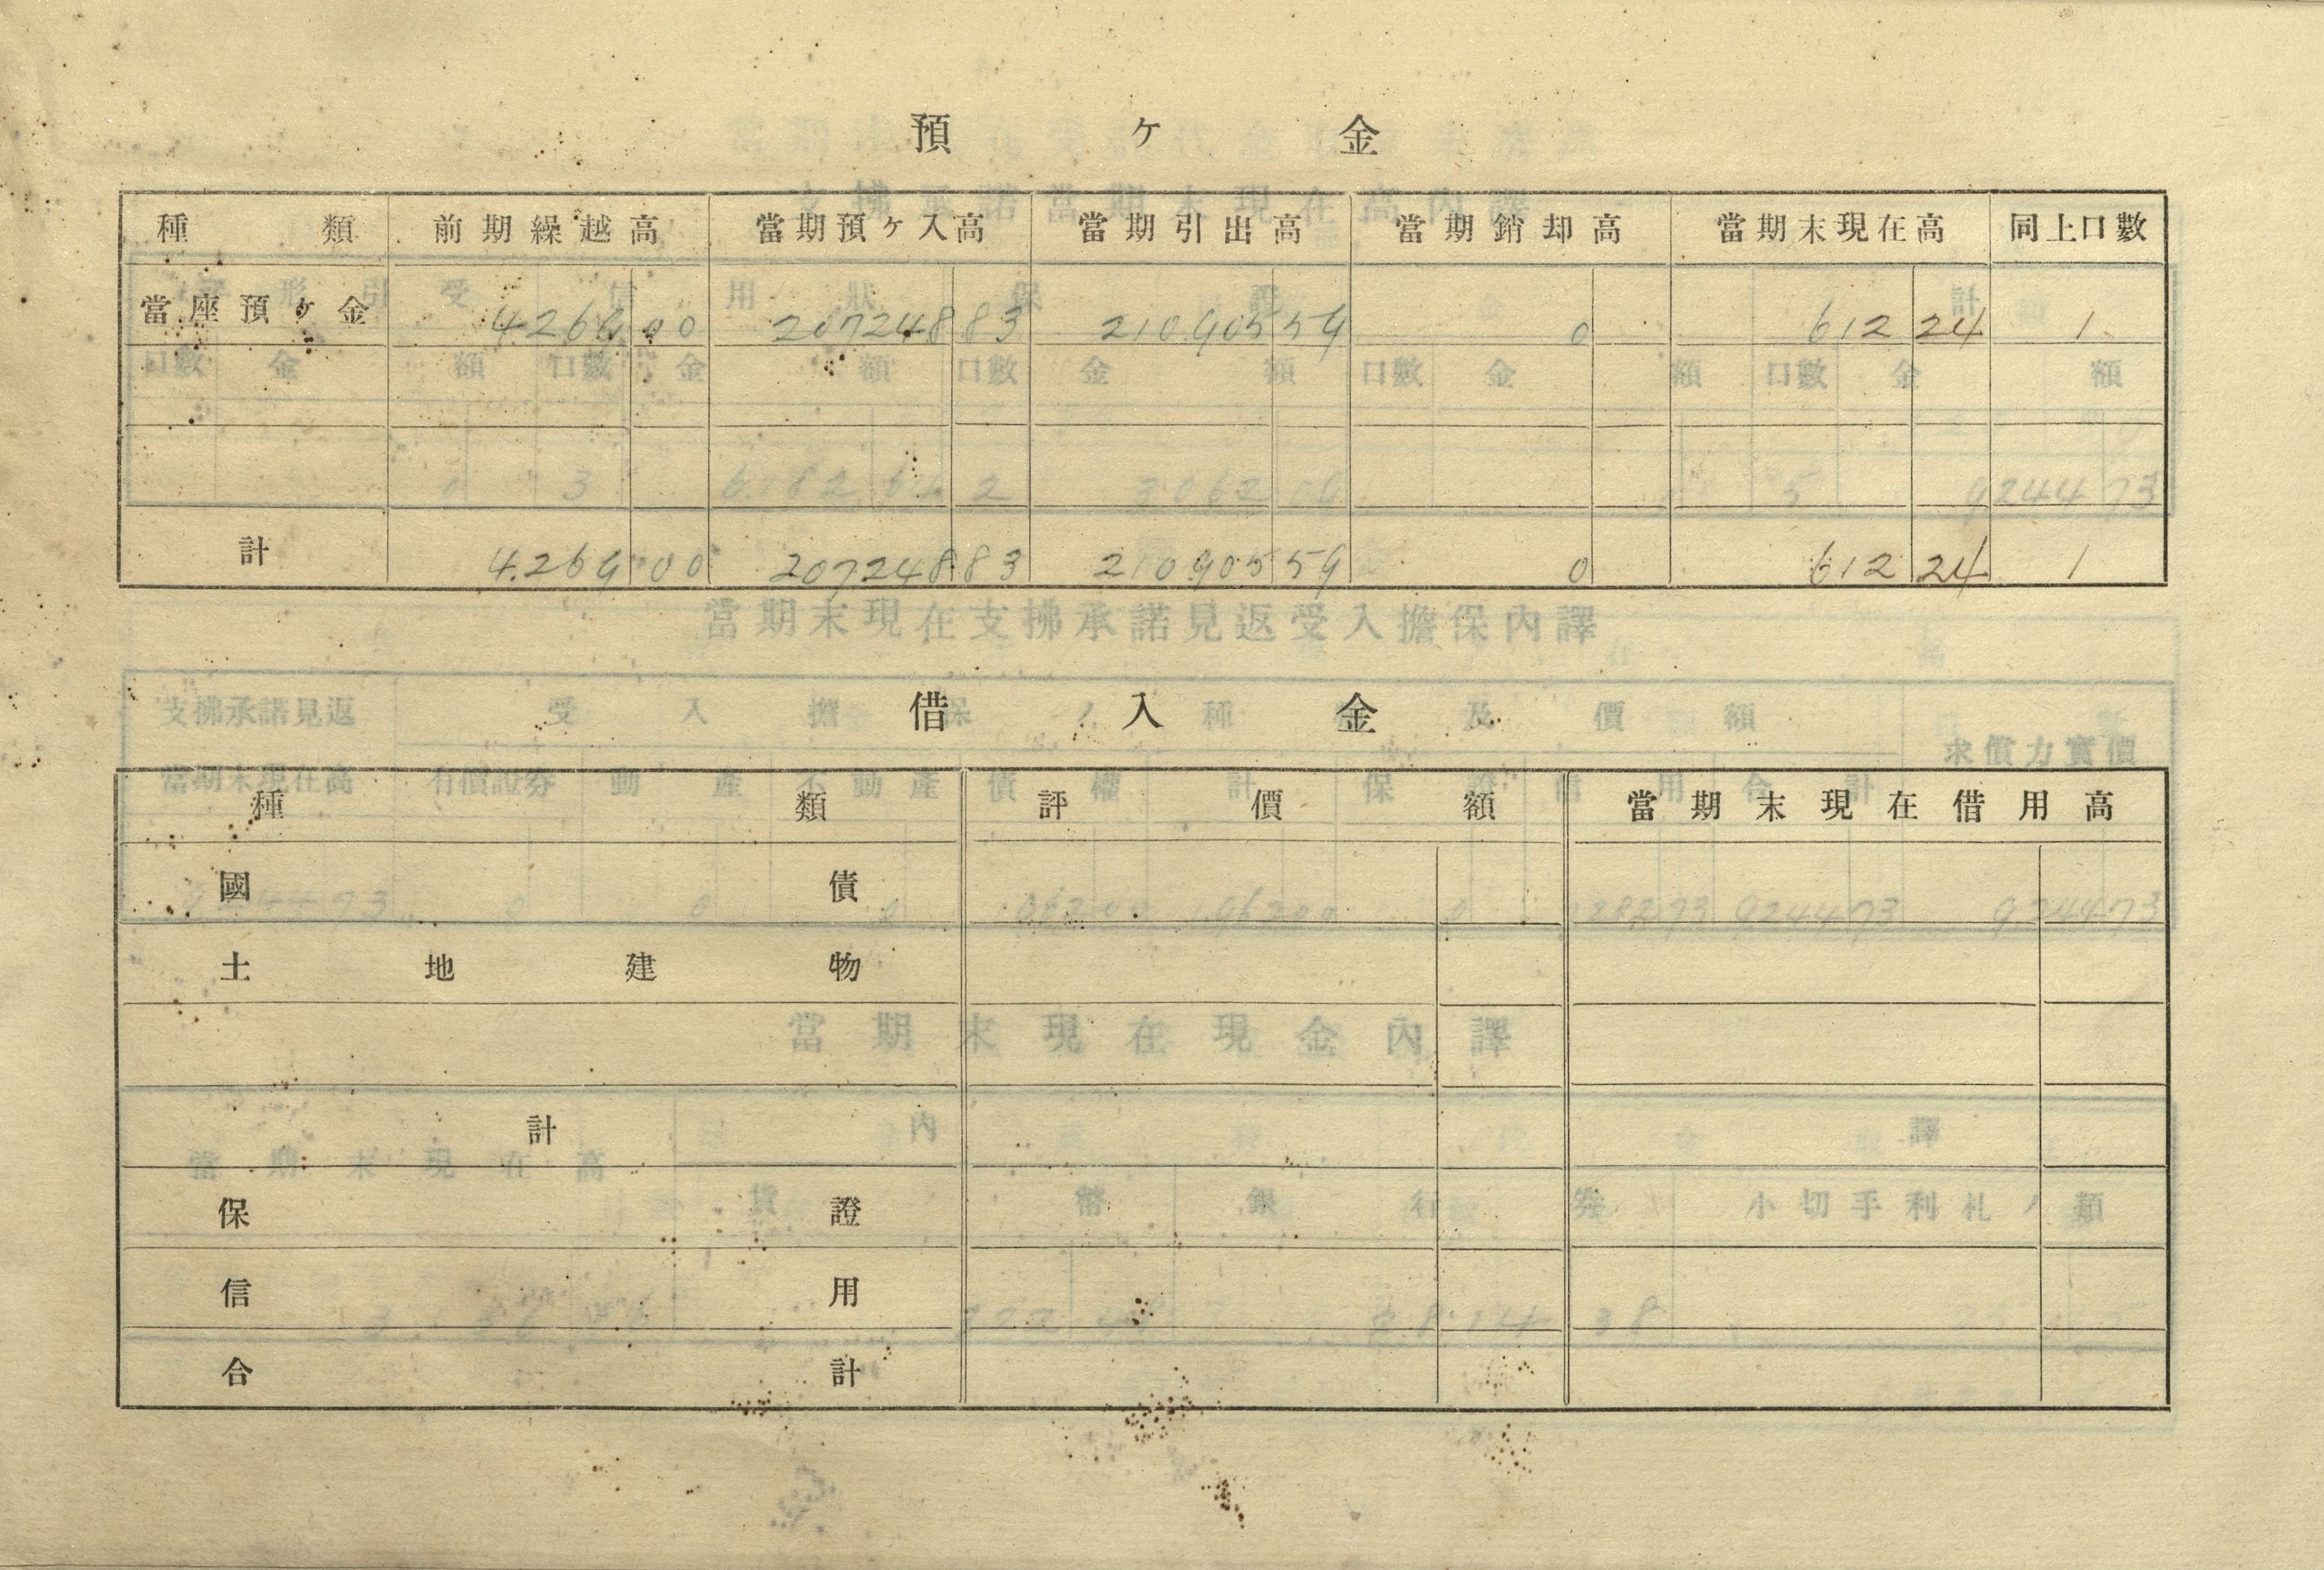 預ヶ金
種類 前期繰越高 當期預ヶ入高 當期引出高 當期銷却高 當期末現在高 同上口數
當座預ヶ金 4.269 00 207248 83 210.905 59 0 612 24 1
計 4.269 00 207248 83 210905 59 0 612 24 1
借入金
種類 評價額 當期末現在借用高
國債
土地建物
計
保證
信用
合計